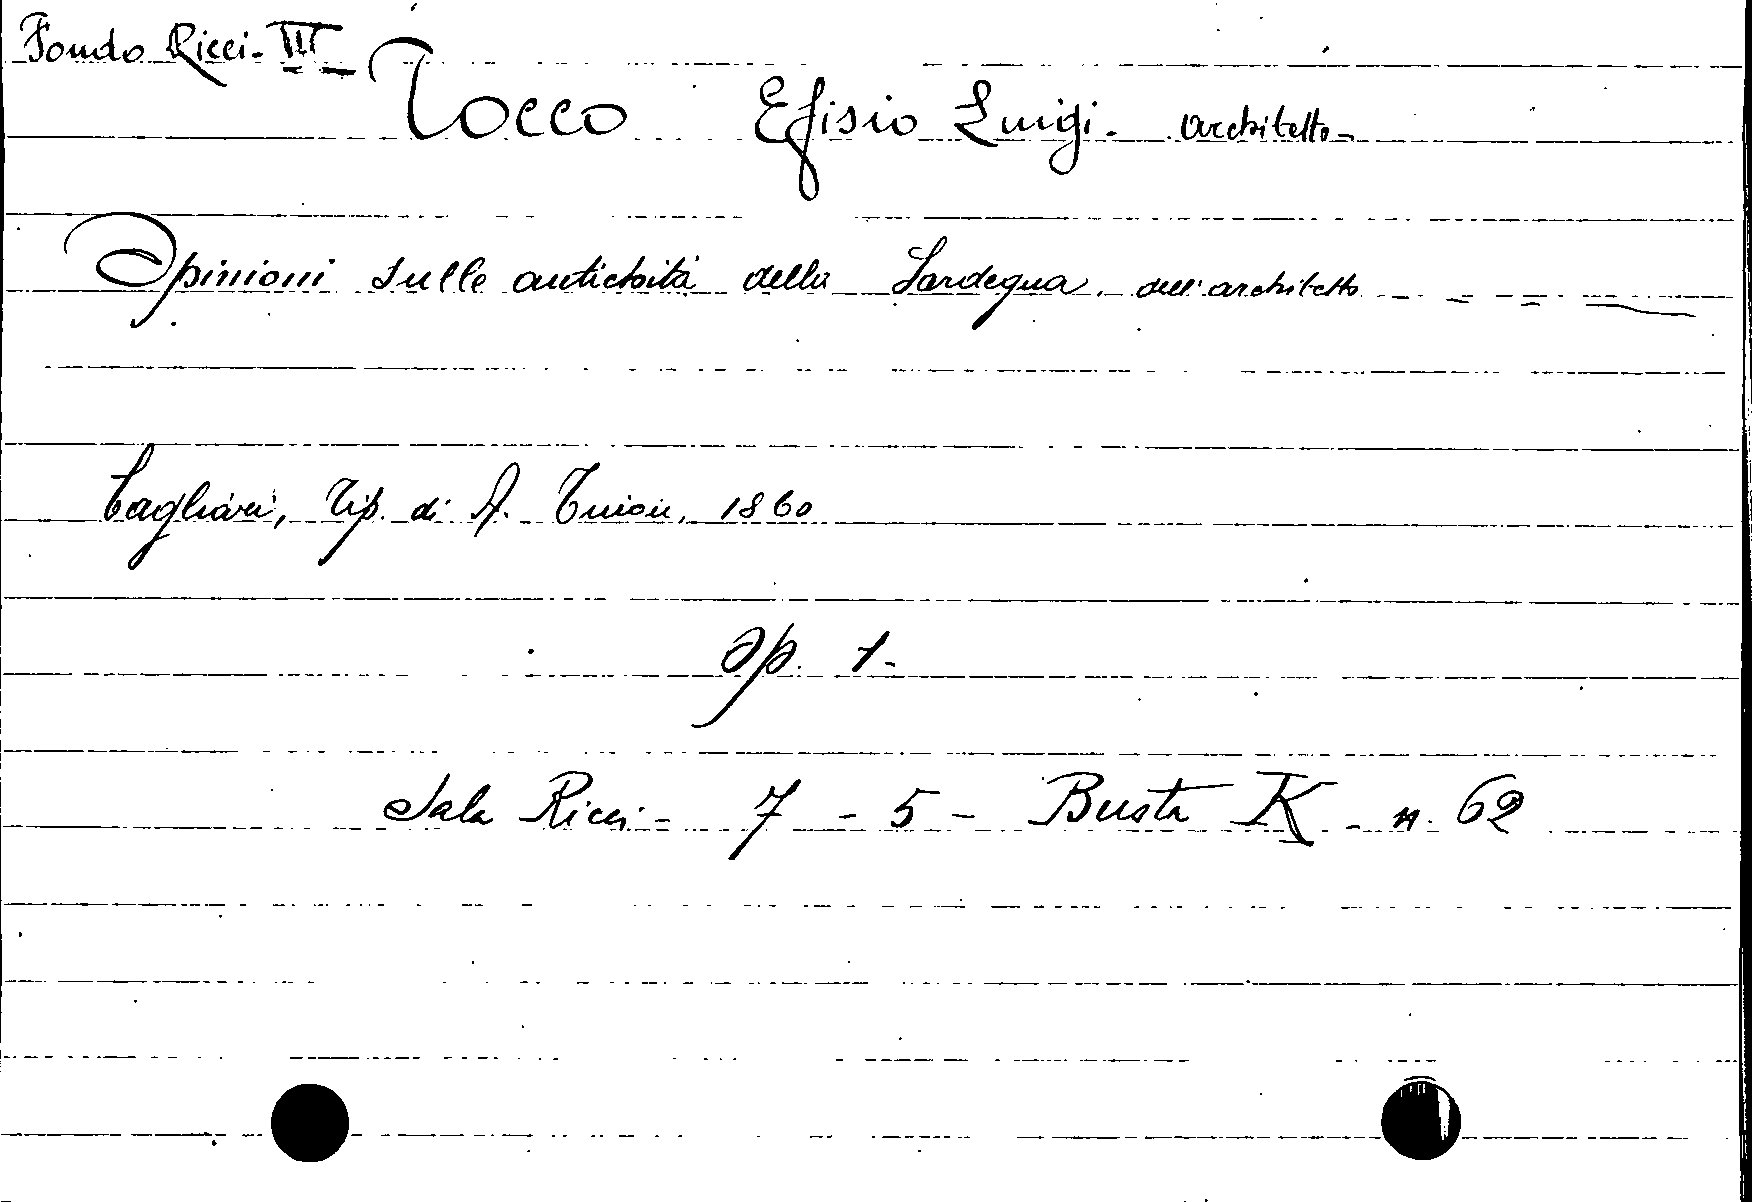 Fondo Ricci - III
Tocco Efisio Luigi - architetto -
Opinioni sulle antichità della Sardegna, dell'architetto - - -
Cagliari, Tip. di A. Timon, 1860
Op. 1 -
Sala Ricci - 7 - 5 - Busta K - n. 62